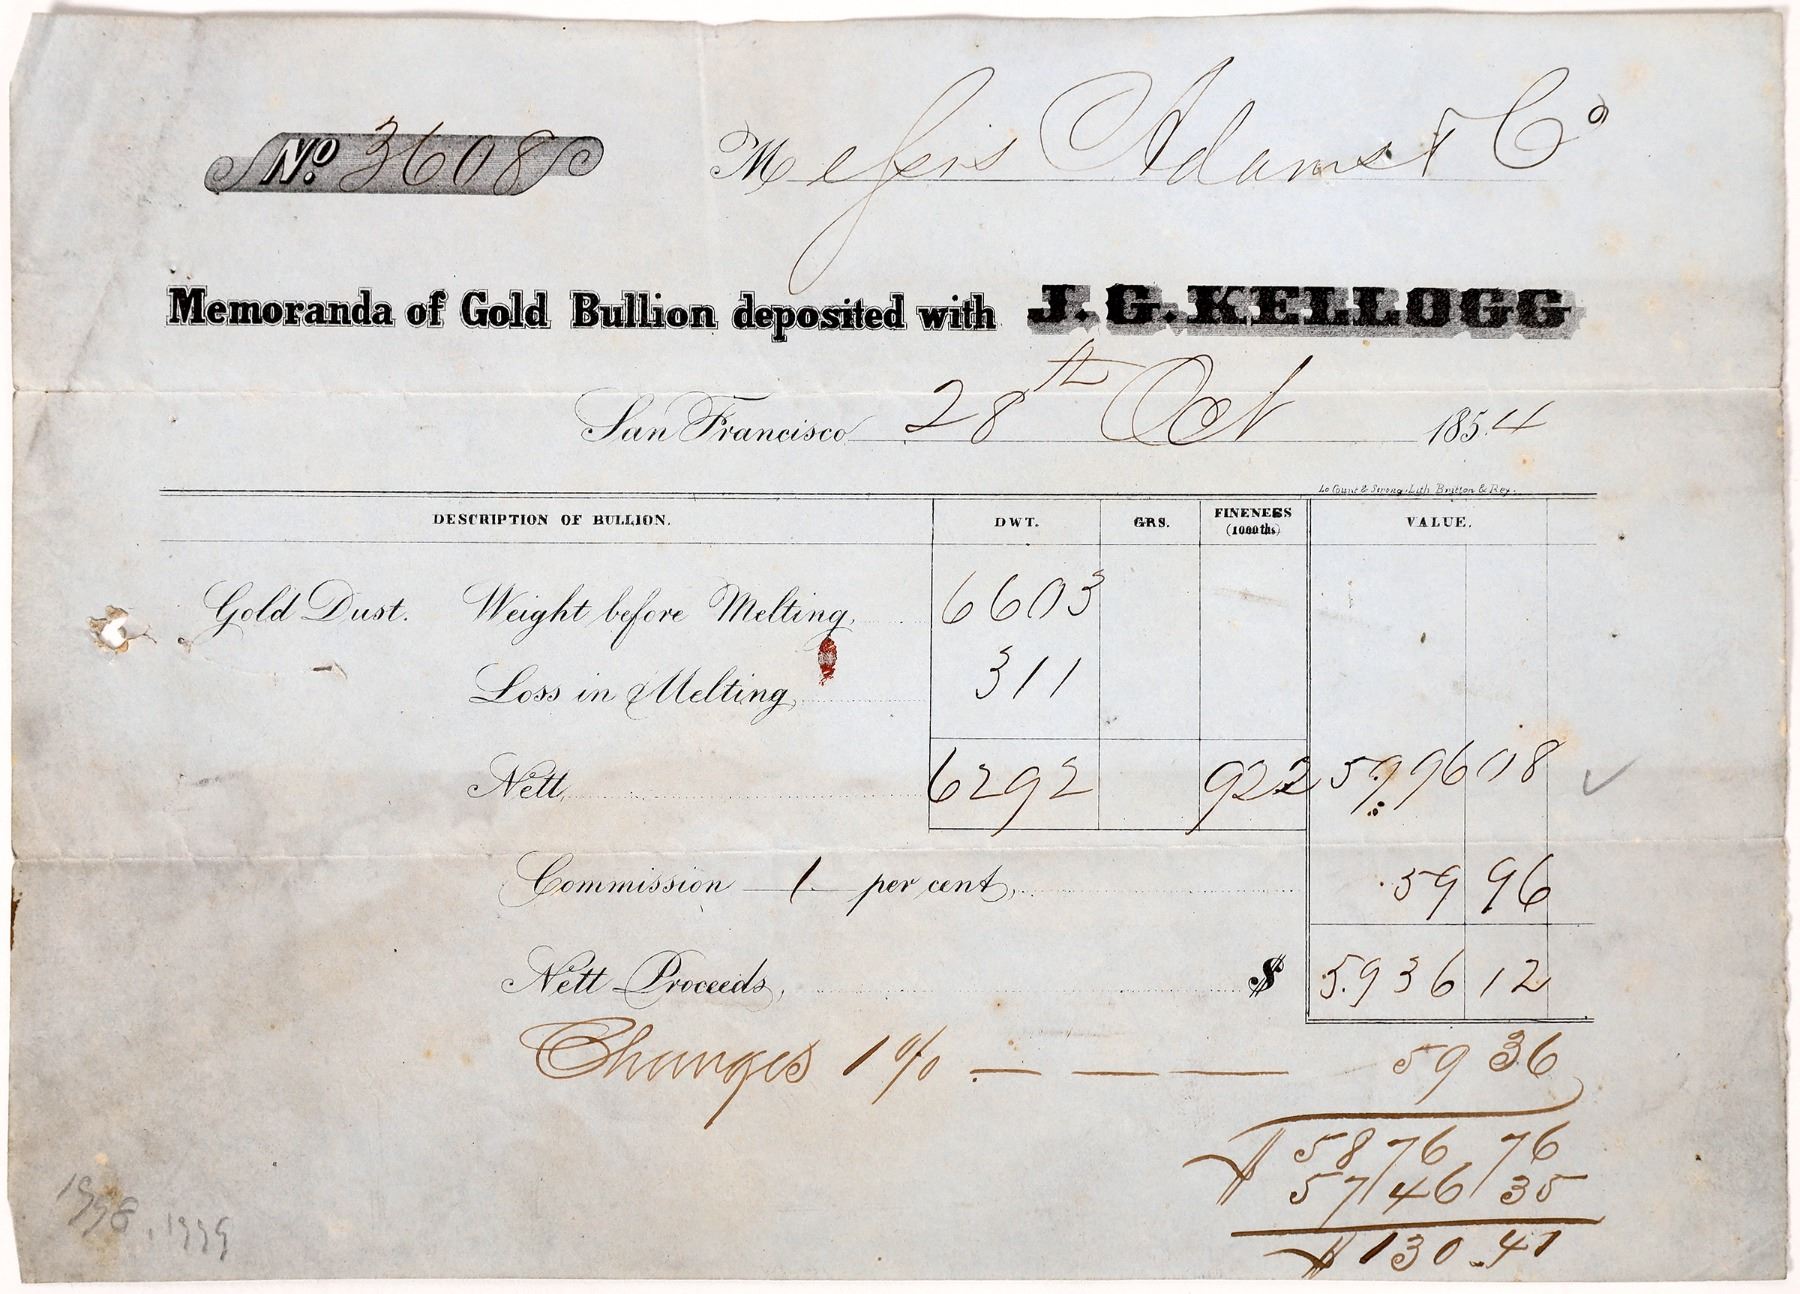 No. 3608 Messrs Adams & Co
Memoranda of Gold Bullion deposited with J. G. KELLOGG
San Francisco 28th Oct 1854
Le Count & Strong. Lith Britton & Rey.
DESCRIPTION OF BULLION. DWT. GRS. FINENESS (1000ths) VALUE.
Gold Dust. Weight before Melting, 6603
Loss in Melting, 311
Nett, 6292 922 5996 08
Commission 1 per cent, 59 96
Nett Proceeds, $ 5936 12
Charges 1 % 59 36
$ 5876 76
5746 35
$ 130.41